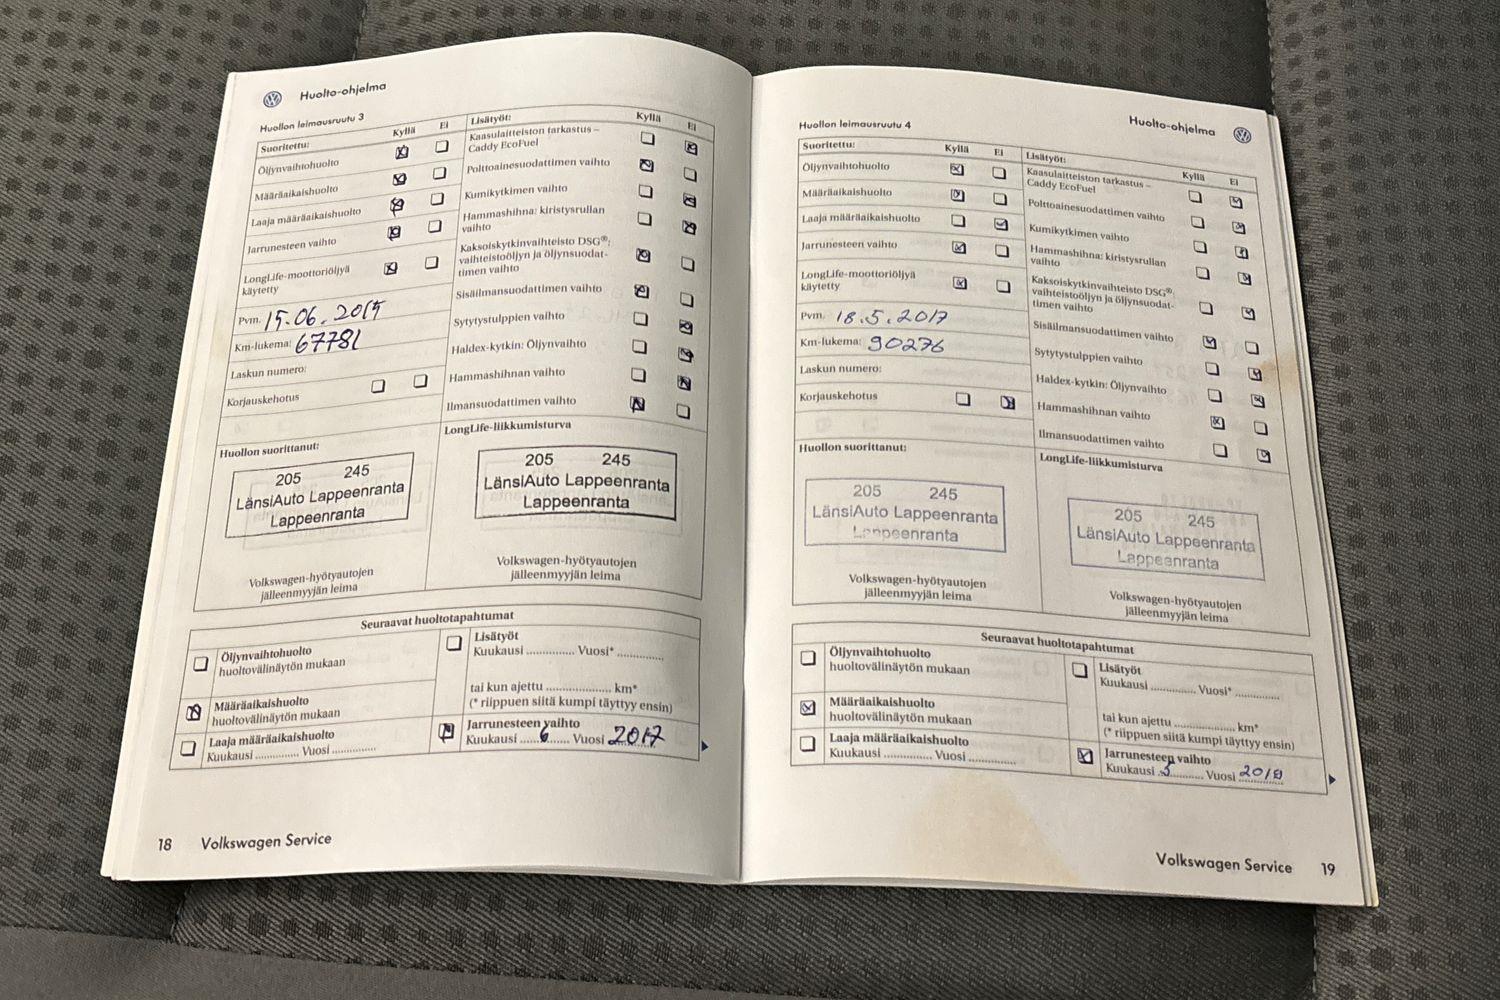 Huolto-ohjelma
Huollon leimausruutu 3
Suoritettu: Kyllä Ei
Öljynvaihtohuolto
Määräaikaishuolto
Laaja määräaikaishuolto
Jarrunesteen vaihto
LongLife-moottoriöljyä
käytetty
Pvm. 15.06.2015
Km-lukema: 67781
Laskun numero:
Korjauskehotus
Lisätyöt: Kyllä Ei
Kaasulaitteiston tarkastus –
Caddy EcoFuel
Polttoainesuodattimen vaihto
Kumikytkimen vaihto
Hammashihna: kiristysrullan
vaihto
Kaksoiskytkinvaihteisto DSG®:
vaihteistoöljyn ja öljynsuodat-
timen vaihto
Sisäilmansuodattimen vaihto
Sytytystulppien vaihto
Haldex-kytkin: Öljynvaihto
Hammashihnan vaihto
Ilmansuodattimen vaihto
Huollon suorittanut:
205 245
LänsiAuto Lappeenranta
Lappeenranta
Volkswagen-hyötyautojen
jälleenmyyjän leima
LongLife-liikkumisturva
205 245
LänsiAuto Lappeenranta
Lappeenranta
Volkswagen-hyötyautojen
jälleenmyyjän leima
Seuraavat huoltotapahtumat
Öljynvaihtohuolto
huoltovälinäytön mukaan
Määräaikaishuolto
huoltovälinäytön mukaan
Laaja määräaikaishuolto
Kuukausi ............... Vuosi ...............
Lisätyöt
Kuukausi ............... Vuosi* ...............
tai kun ajettu .................... km*
(* riippuen siitä kumpi täyttyy ensin)
Jarrunesteen vaihto
Kuukausi 6 Vuosi 2017
18 Volkswagen Service
Huolto-ohjelma
Huollon leimausruutu 4
Suoritettu: Kyllä Ei
Öljynvaihtohuolto
Määräaikaishuolto
Laaja määräaikaishuolto
Jarrunesteen vaihto
LongLife-moottoriöljyä
käytetty
Pvm. 18.5.2017
Km-lukema: 90276
Laskun numero:
Korjauskehotus
Lisätyöt: Kyllä Ei
Kaasulaitteiston tarkastus –
Caddy EcoFuel
Polttoainesuodattimen vaihto
Kumikytkimen vaihto
Hammashihna: kiristysrullan
vaihto
Kaksoiskytkinvaihteisto DSG®:
vaihteistoöljyn ja öljynsuodat-
timen vaihto
Sisäilmansuodattimen vaihto
Sytytystulppien vaihto
Haldex-kytkin: Öljynvaihto
Hammashihnan vaihto
Ilmansuodattimen vaihto
Huollon suorittanut:
205 245
LänsiAuto Lappeenranta
Lappeenranta
Volkswagen-hyötyautojen
jälleenmyyjän leima
LongLife-liikkumisturva
205 245
LänsiAuto Lappeenranta
Lappeenranta
Volkswagen-hyötyautojen
jälleenmyyjän leima
Seuraavat huoltotapahtumat
Öljynvaihtohuolto
huoltovälinäytön mukaan
Määräaikaishuolto
huoltovälinäytön mukaan
Laaja määräaikaishuolto
Kuukausi ............... Vuosi ...............
Lisätyöt
Kuukausi ............... Vuosi* ...............
tai kun ajettu .................... km*
(* riippuen siitä kumpi täyttyy ensin)
Jarrunesteen vaihto
Kuukausi 5 Vuosi
Volkswagen Service 19